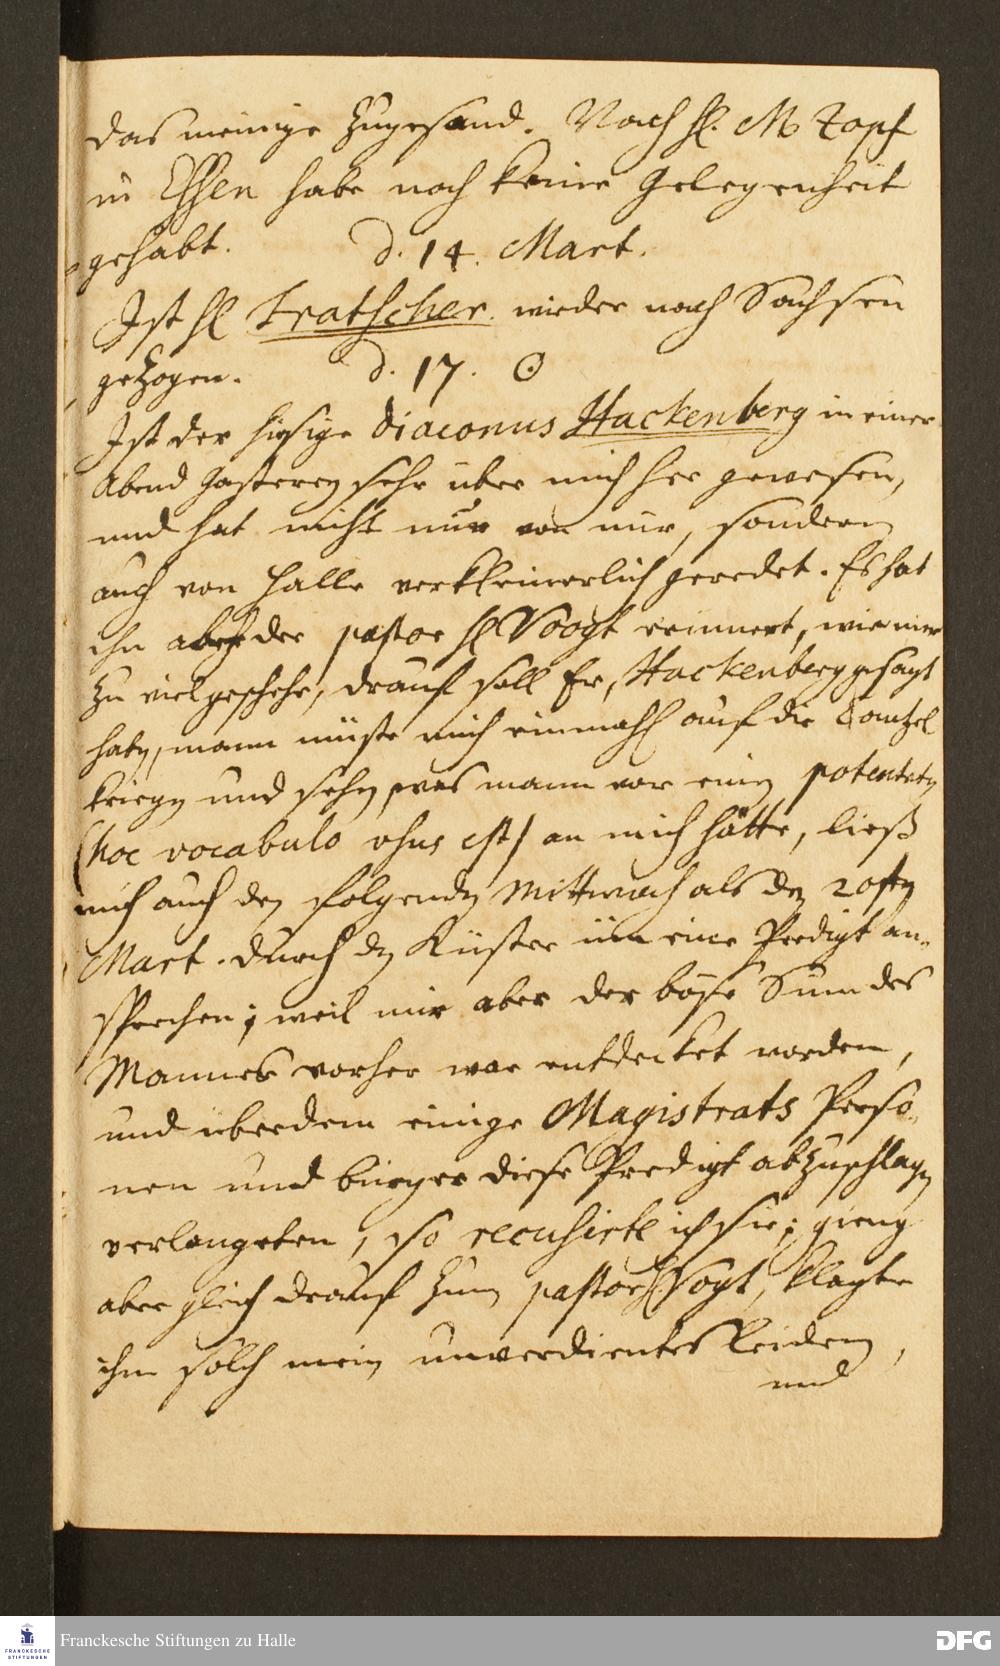 das meinige zugesand. Nach H. M. Zopf
in Essen habe noch keine Gelegenheit
gehabt. d. 14. Mart.
Ist H. Tratscher wieder nach Sachsen
gezogen. d. 17. ☉
Ist der hiesige Diaconus Hackenberg in einer
Abend Gasterey sehr über mich her gewesen,
und hat nicht nur von mir, sondern
auch von Halle verkleinerlich geredet. Es hat
ihn aber der pastor H. Voogt erinnert, wie
zu viel geschehe, drauf soll Er, Hackenberg gesagt
haben, mann müste mich einmahl auf die Cantzel
kriegen und sehen, was mann vor einen potentaten
(hoc vocabulo usus est) an mich hätte, ließ
mich auch den folgenden Mittwoch als den 20sten
Mart. durch den Küster üm eine Predigt an-
sprechen; weil mir aber der böse Sinn des
Mannes vorher war entdecket worden,
und überdem einige Magistrats Perso-
nen und bürger diese Predigt abzuschlagen
verlangeten, so recusirte ich sie; gieng
aber gleich drauf zum pastor H. Vogt, klagte
ihm solch mein unverdientes Leiden,
und
Franckesche Stiftungen zu Halle
FRANCKESCHE
STIFTUNGEN
DFG